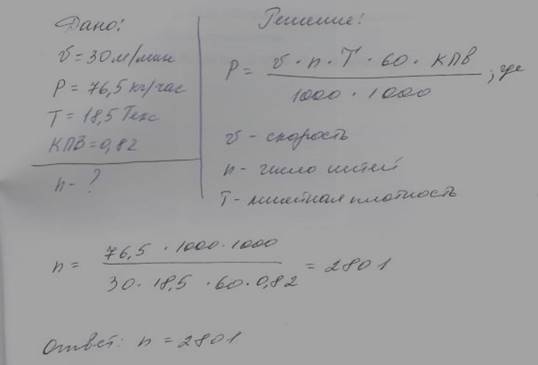 Дано:
v = 30 м/мин
P = 76,5 кг/час
T = 18,5 Текс
КПВ = 0,82
n - ?
Решение:
P = v · n · T · 60 · КПВ / 1000 · 1000 ; где
v - скорость
n - число нитей
T - линейная плотность
n = 76,5 · 1000 · 1000 / 30 · 18,5 · 60 · 0,82 = 2801
Ответ: n = 2801